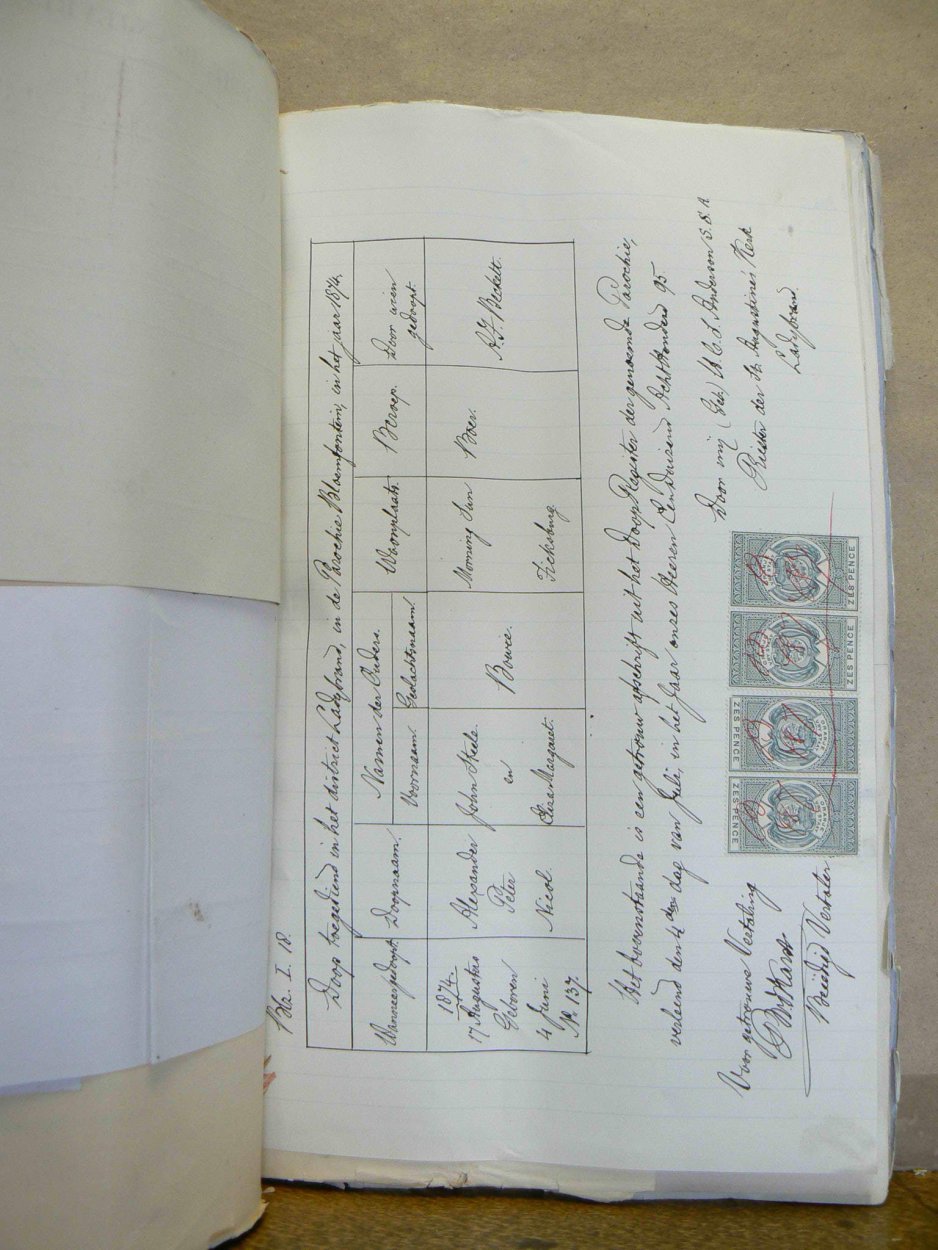 Blz. I. 18.
Doop toegediend in het district Ladybrand, in de Parochie Bloemfontein, in het jaar 1874.
Wanneer gedoopt.
Doopnaam.
Namen der Ouders.
Voornaam.
Geslachtsnaam.
Woonplaats.
Beroep.
Door wien
gedoopt.
1874.
17 Augustus
Geboren
4 Juni
No. 137.
Alexander
Peter
Nicol.
John Steele
en
Eliza Margaret.
Bowie.
Morning Sun
Ficksburg
Boer.
A.F. Beckett.
Het bovenstaande is een getrouw afschrift uit het Doop Register der genoemde Parochie,
verleend den 4 den dag van Julij, in het Jaar onses Heeren Een Duizend Achthonderd 95
Door mij (Get) Anderson S.S.A.
Priester der St Augustine's Kerk
Ladybrand.
Voor getrouwe Vertaling
Beëdigd Vertaler
ZES PENCE
ZES PENCE
ZES PENCE
ZES PENCE